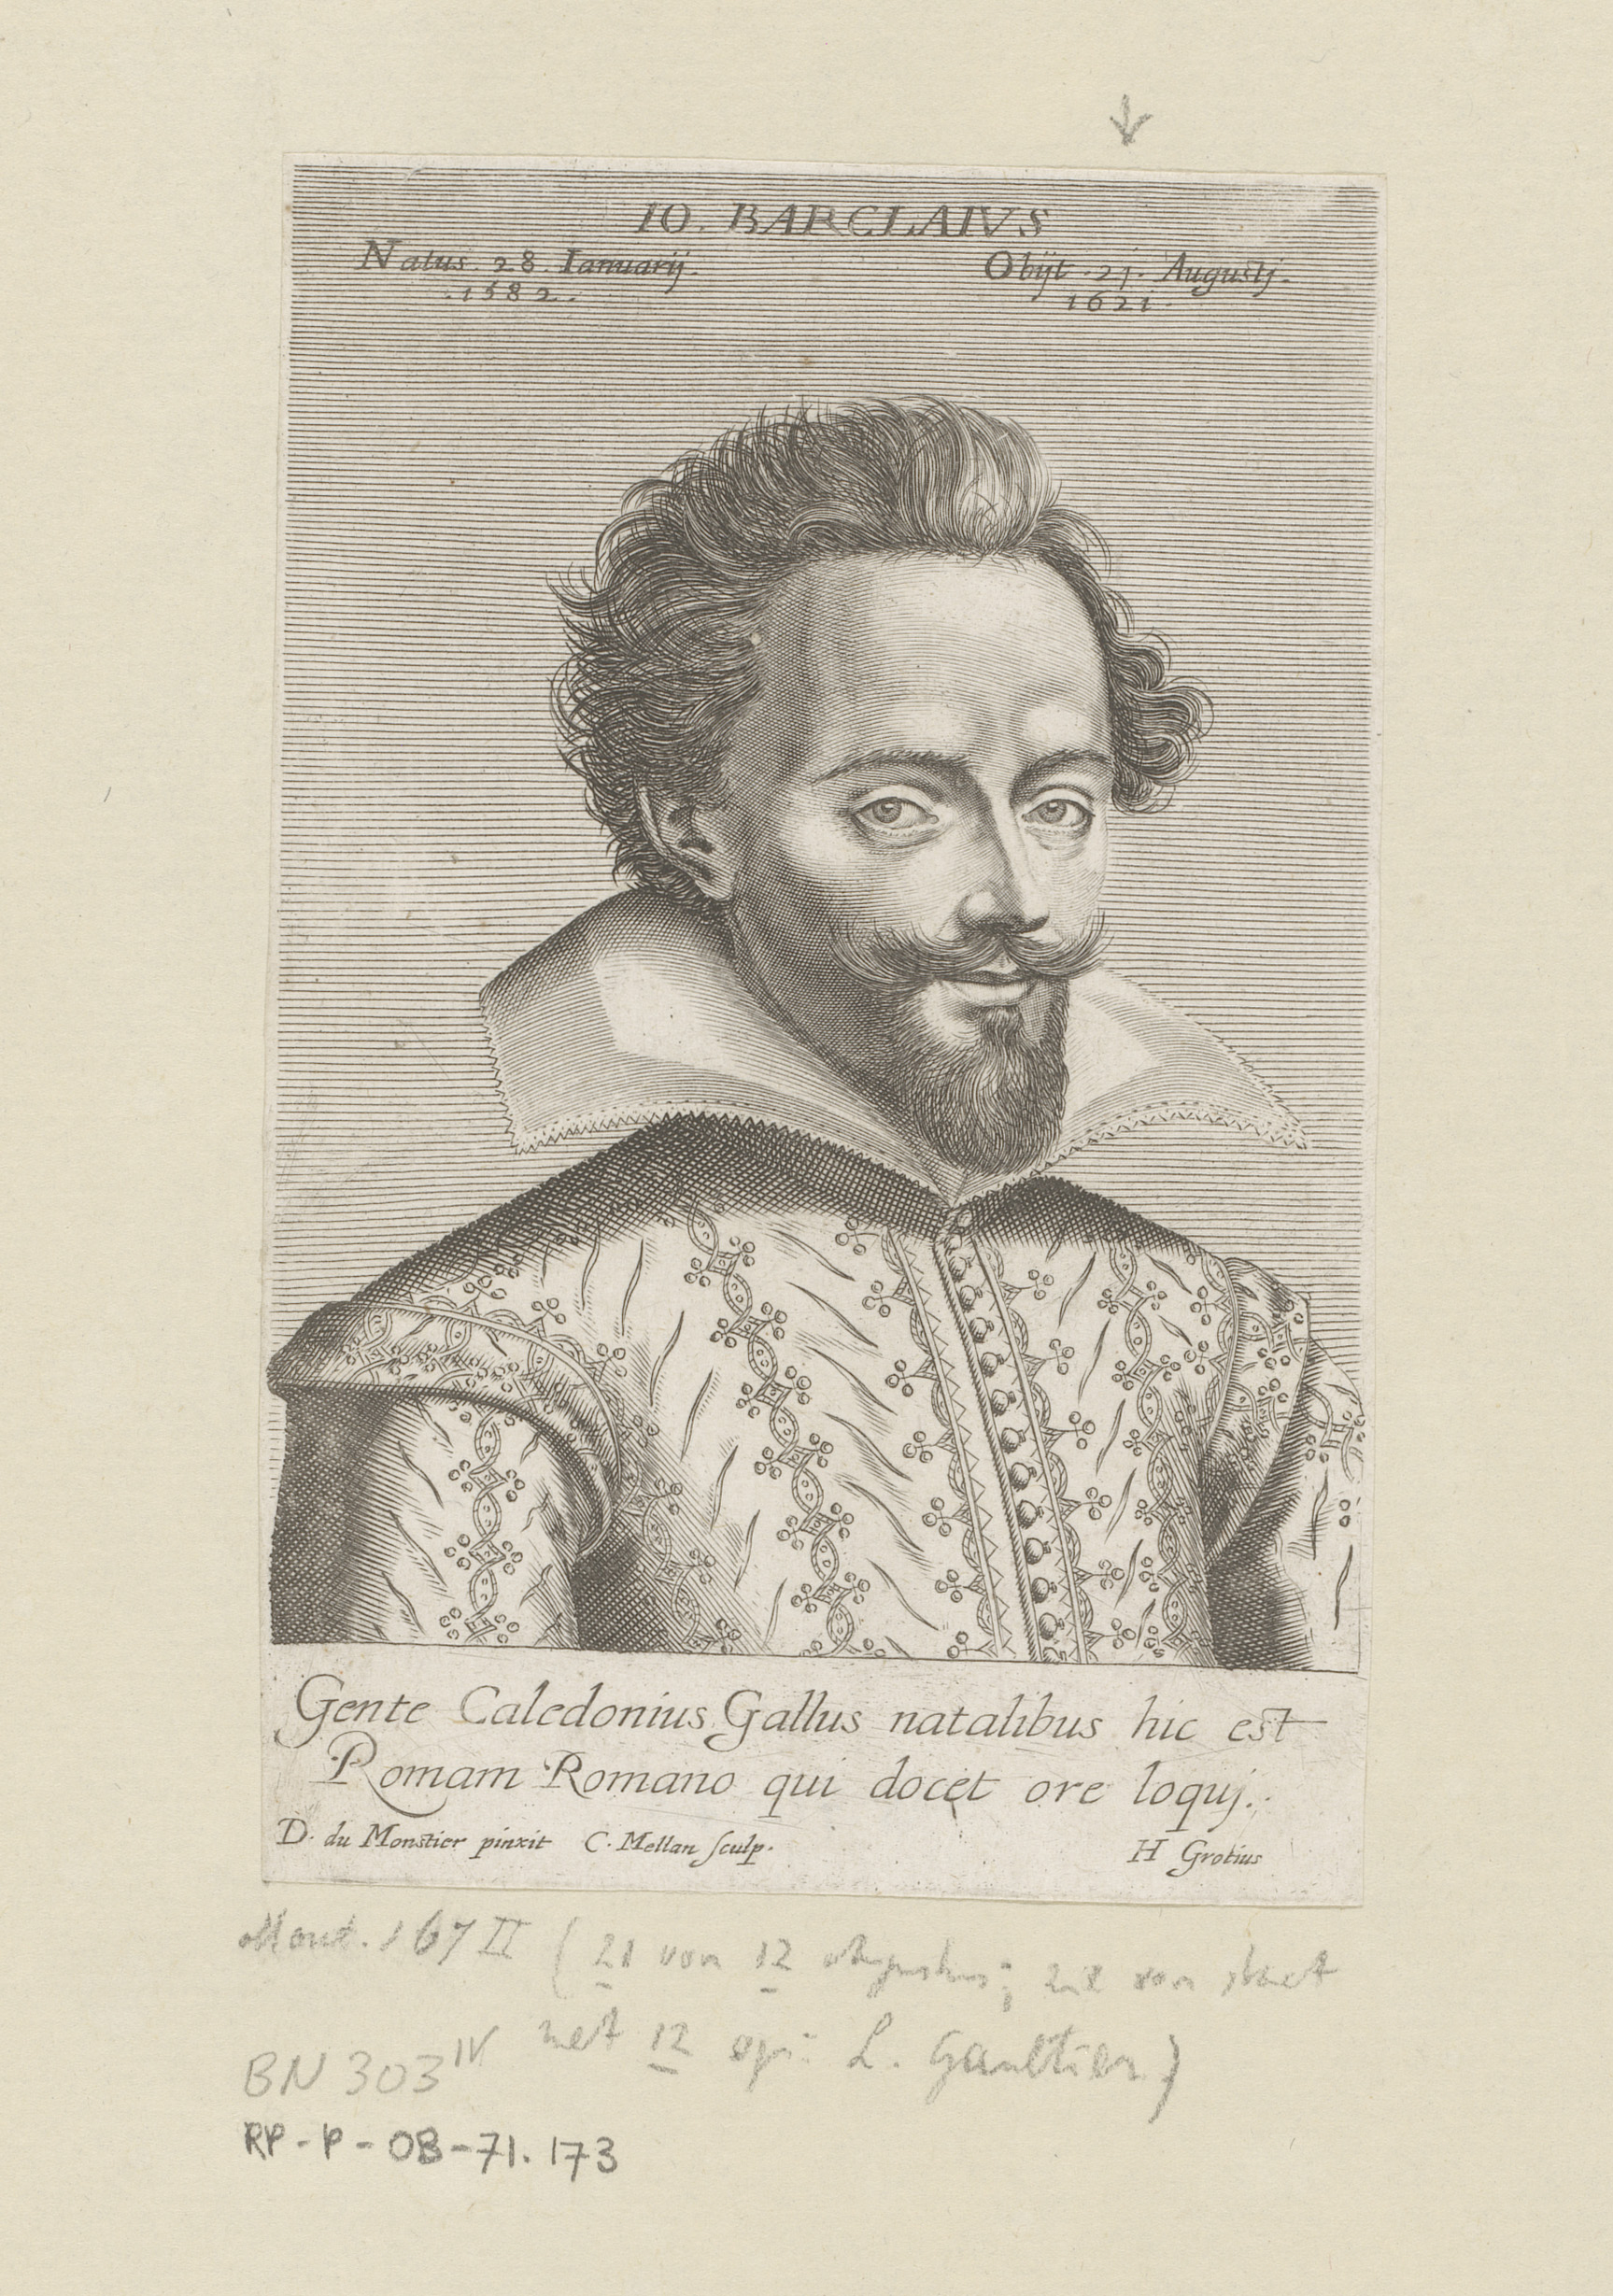 IO. BARCLAIVS
Natus. 28. Ianuarij.
.1582.
Obijt .21. Augustj.
1621.
Gente Caledonius Gallus natalibus hic est
Romam Romano qui docet ore loquj.
D. du Monstier pinxit C. Mellan sculp.
H Grotius
167 II (21 van 12 Augustus; zie van staet
met 12 op: L. Gaultier)
BN 303 IV
RP-P-OB-71.173